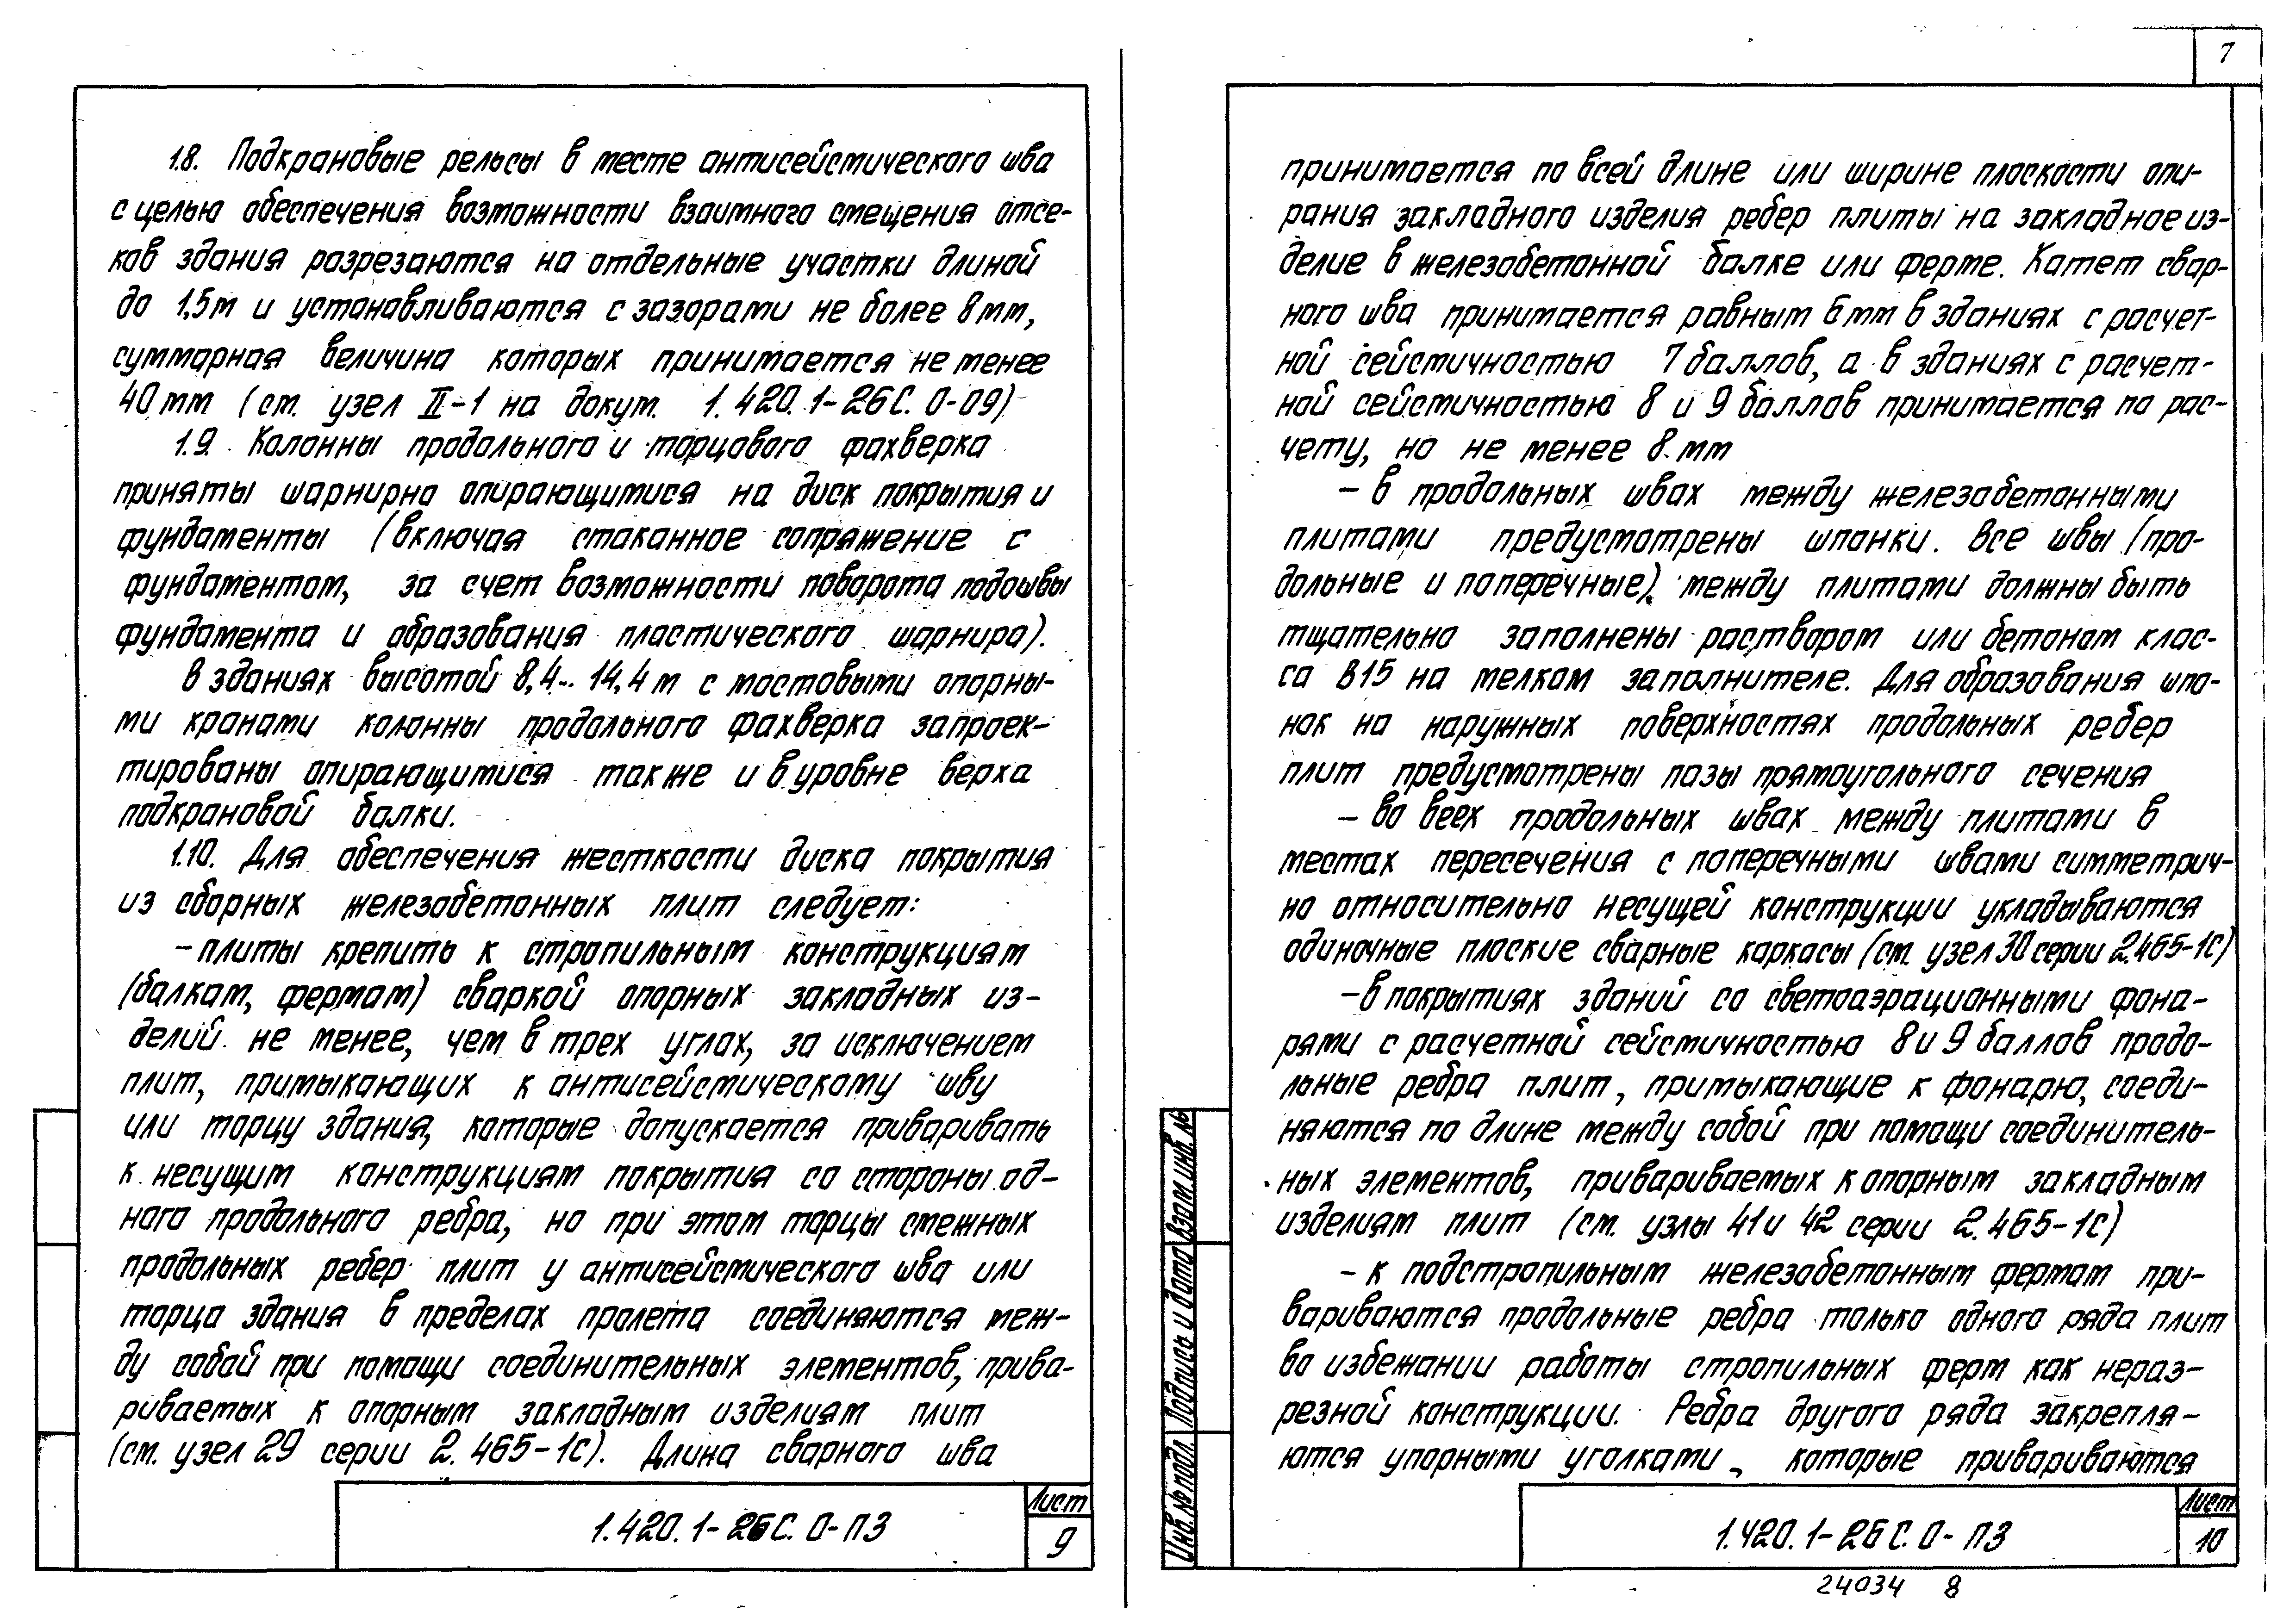 1.8. Подкрановые рельсы в месте антисейсмического шва
с целью обеспечения возможности взаимного смещения отсе-
ков здания разрезаются на отдельные участки длиной
до 1,5м и устанавливаются с зазорами не более 8мм,
суммарная величина которых принимается не менее
40мм (см. узел II-1 на докум. 1.420.1-26С.0-09)
1.9. Колонны продольного и торцового фахверка
приняты шарнирно опирающимися на диск покрытия и
фундаменты (включая стаканное сопряжение с
фундаментом, за счет возможности поворота подошвы
фундамента и образования пластического шарнира).
В зданиях высотой 8,4... 14,4м с мостовыми опорны-
ми кранами колонны продольного фахверка запроек-
тированы опирающимися также и в уровне верха
подкрановой балки.
1.10. Для обеспечения жесткости диска покрытия
из сборных железобетонных плит следует:
- плиты крепить к стропильным конструкциям
(балкам, фермам) сваркой опорных закладных из-
делий не менее, чем в трех углах, за исключением
плит, примыкающих к антисейсмическому шву
или торцу здания, которые допускается приваривать
к несущим конструкциям покрытия со стороны од-
ного продольного ребра, но при этом торцы смежных
продольных ребер плит у антисейсмического шва или
торца здания в пределах пролета соединяются меж-
ду собой при помощи соединительных элементов, прива-
риваемых к опорным закладным изделиям плит
(см. узел 29 серии 2.465-1С). Длина сварного шва
1.420.1-26С.0-ПЗ
Лист
9
7
принимается по всей длине или ширине плоскости опи-
рания закладного изделия ребер плиты на закладное из-
делие в железобетонной балке или ферме. Катет свар-
ного шва принимается равным 6мм в зданиях с расчет-
ной сейсмичностью 7 баллов, а в зданиях с расчет-
ной сейсмичностью 8 и 9 баллов принимается по рас-
чету, но не менее 8 мм
- в продольных швах между железобетонными
плитами предусмотрены шпонки. Все швы (про-
дольные и поперечные) между плитами должны быть
тщательно заполнены раствором или бетоном клас-
са В15 на мелком заполнителе. Для образования шпо-
нок на наружных поверхностях продольных ребер
плит предусмотрены пазы прямоугольного сечения
- во всех продольных швах между плитами в
местах пересечения с поперечными швами симметрич-
но относительно несущей конструкции укладываются
одиночные плоские сварные каркасы (см. узел 30 серии 2.465-1С)
- в покрытиях зданий со светоаэрационными фона-
рями с расчетной сейсмичностью 8 и 9 баллов продо-
льные ребра плит, примыкающие к фонарю, соеди-
няются по длине между собой при помощи соединитель-
ных элементов, привариваемых к опорным закладным
изделиям плит (см. узлы 41 и 42 серии 2.465-1С)
- к подстропильным железобетонным фермам при-
вариваются продольные ребра только одного ряда плит
во избежании работы стропильных ферм как нераз-
резной конструкции. Ребра другого ряда закрепля-
ются упорными уголками, которые привариваются
Инв. № подл.
Подпись и дата
Взам. инв. №
1.420.1-26С.0-ПЗ
Лист
10
24034 8